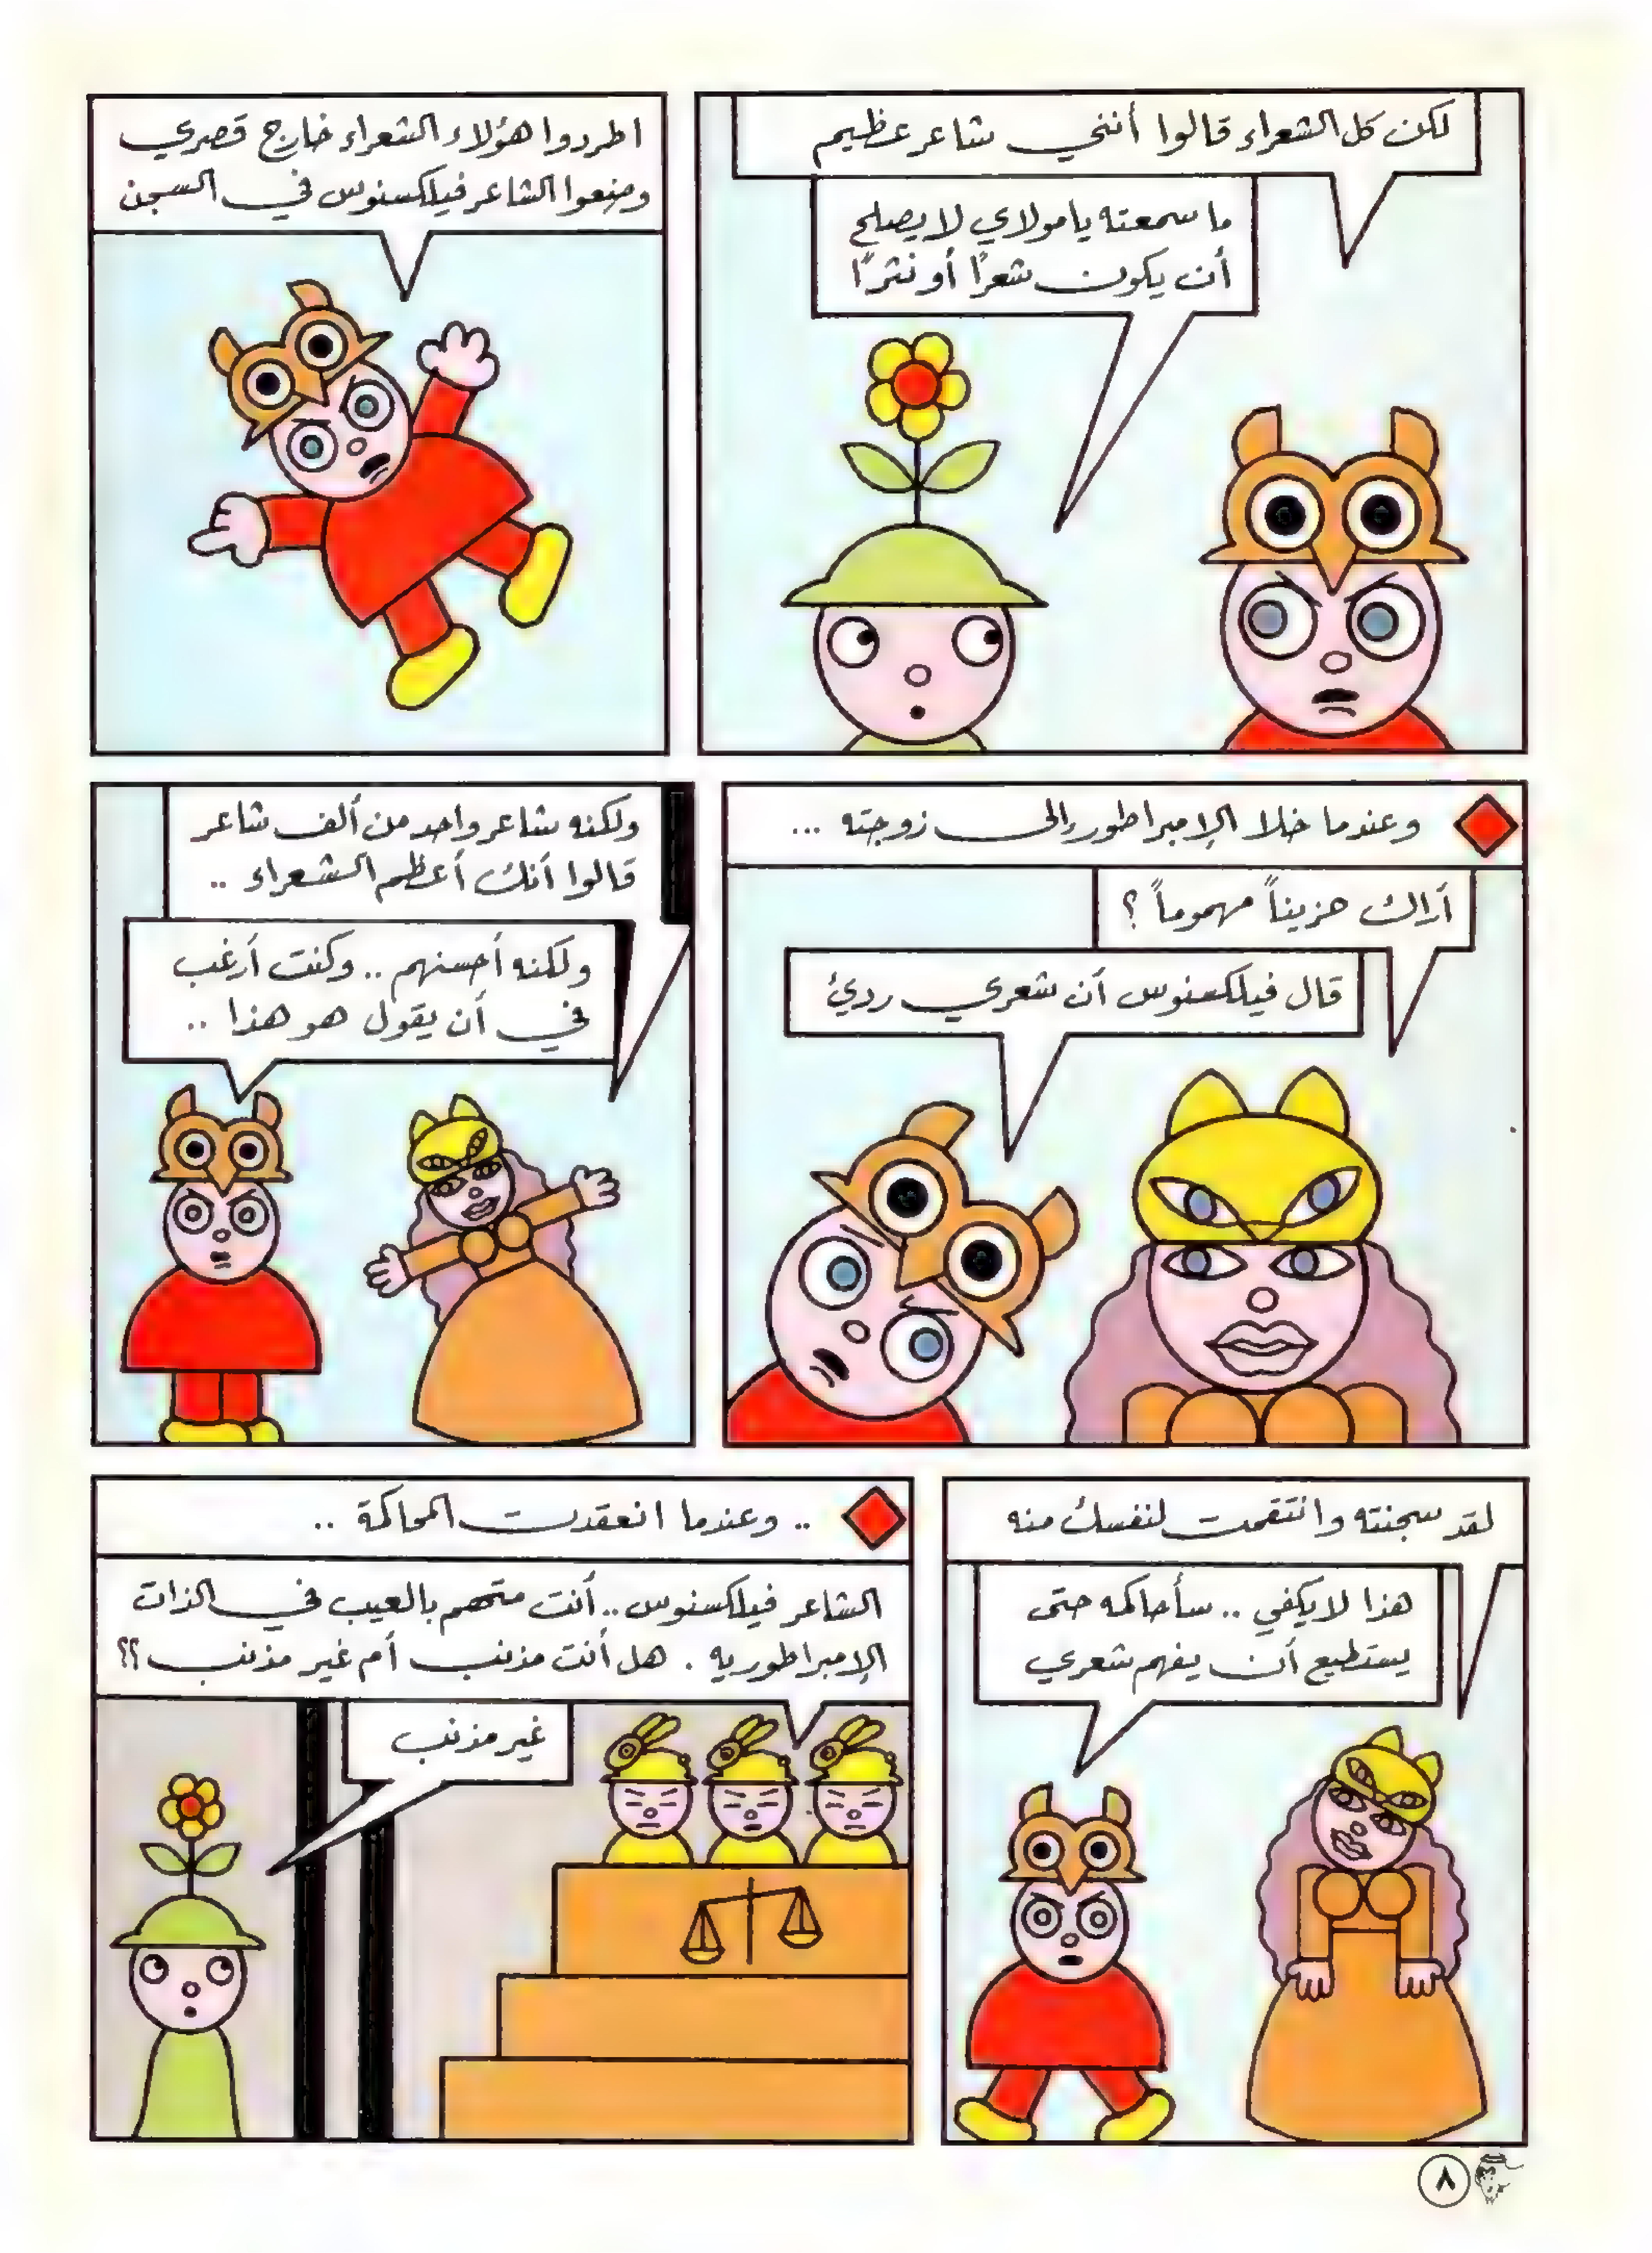 لكن كل الشعراء قالوا أنني شاعر عظيم
ما سمعته يا مولاي لا يصلح
أن يكون شعرًا أو نثرًا
اطردوا هؤلاء الشعراء خارج قصري
وضعوا الشاعر فيلكسنوس في السجن
وعندما خلا الإمبراطور إلى زوجته ...
أراك حزيناً مهموماً ؟
قال فيلكسنوس أن شعري ردئ
ولكنه شاعر واحد من ألف شاعر
قالوا أنك أعظم الشعراء ..
ولكنه أحسنهم .. وكنت أرغب
في أن يقول هو هذا ..
لقد سجنته وانتقمت لنفسك منه
هذا لا يكفي .. سأحاكمه حتى
يستطيع أن يفهم شعري
.. وعندما انعقدت المحاكمة ..
الشاعر فيلكسنوس .. أنت متهم بالعيب في الذات
الإمبراطوريه . هل أنت مذنب أم غير مذنب ؟؟
غير مذنب
٨